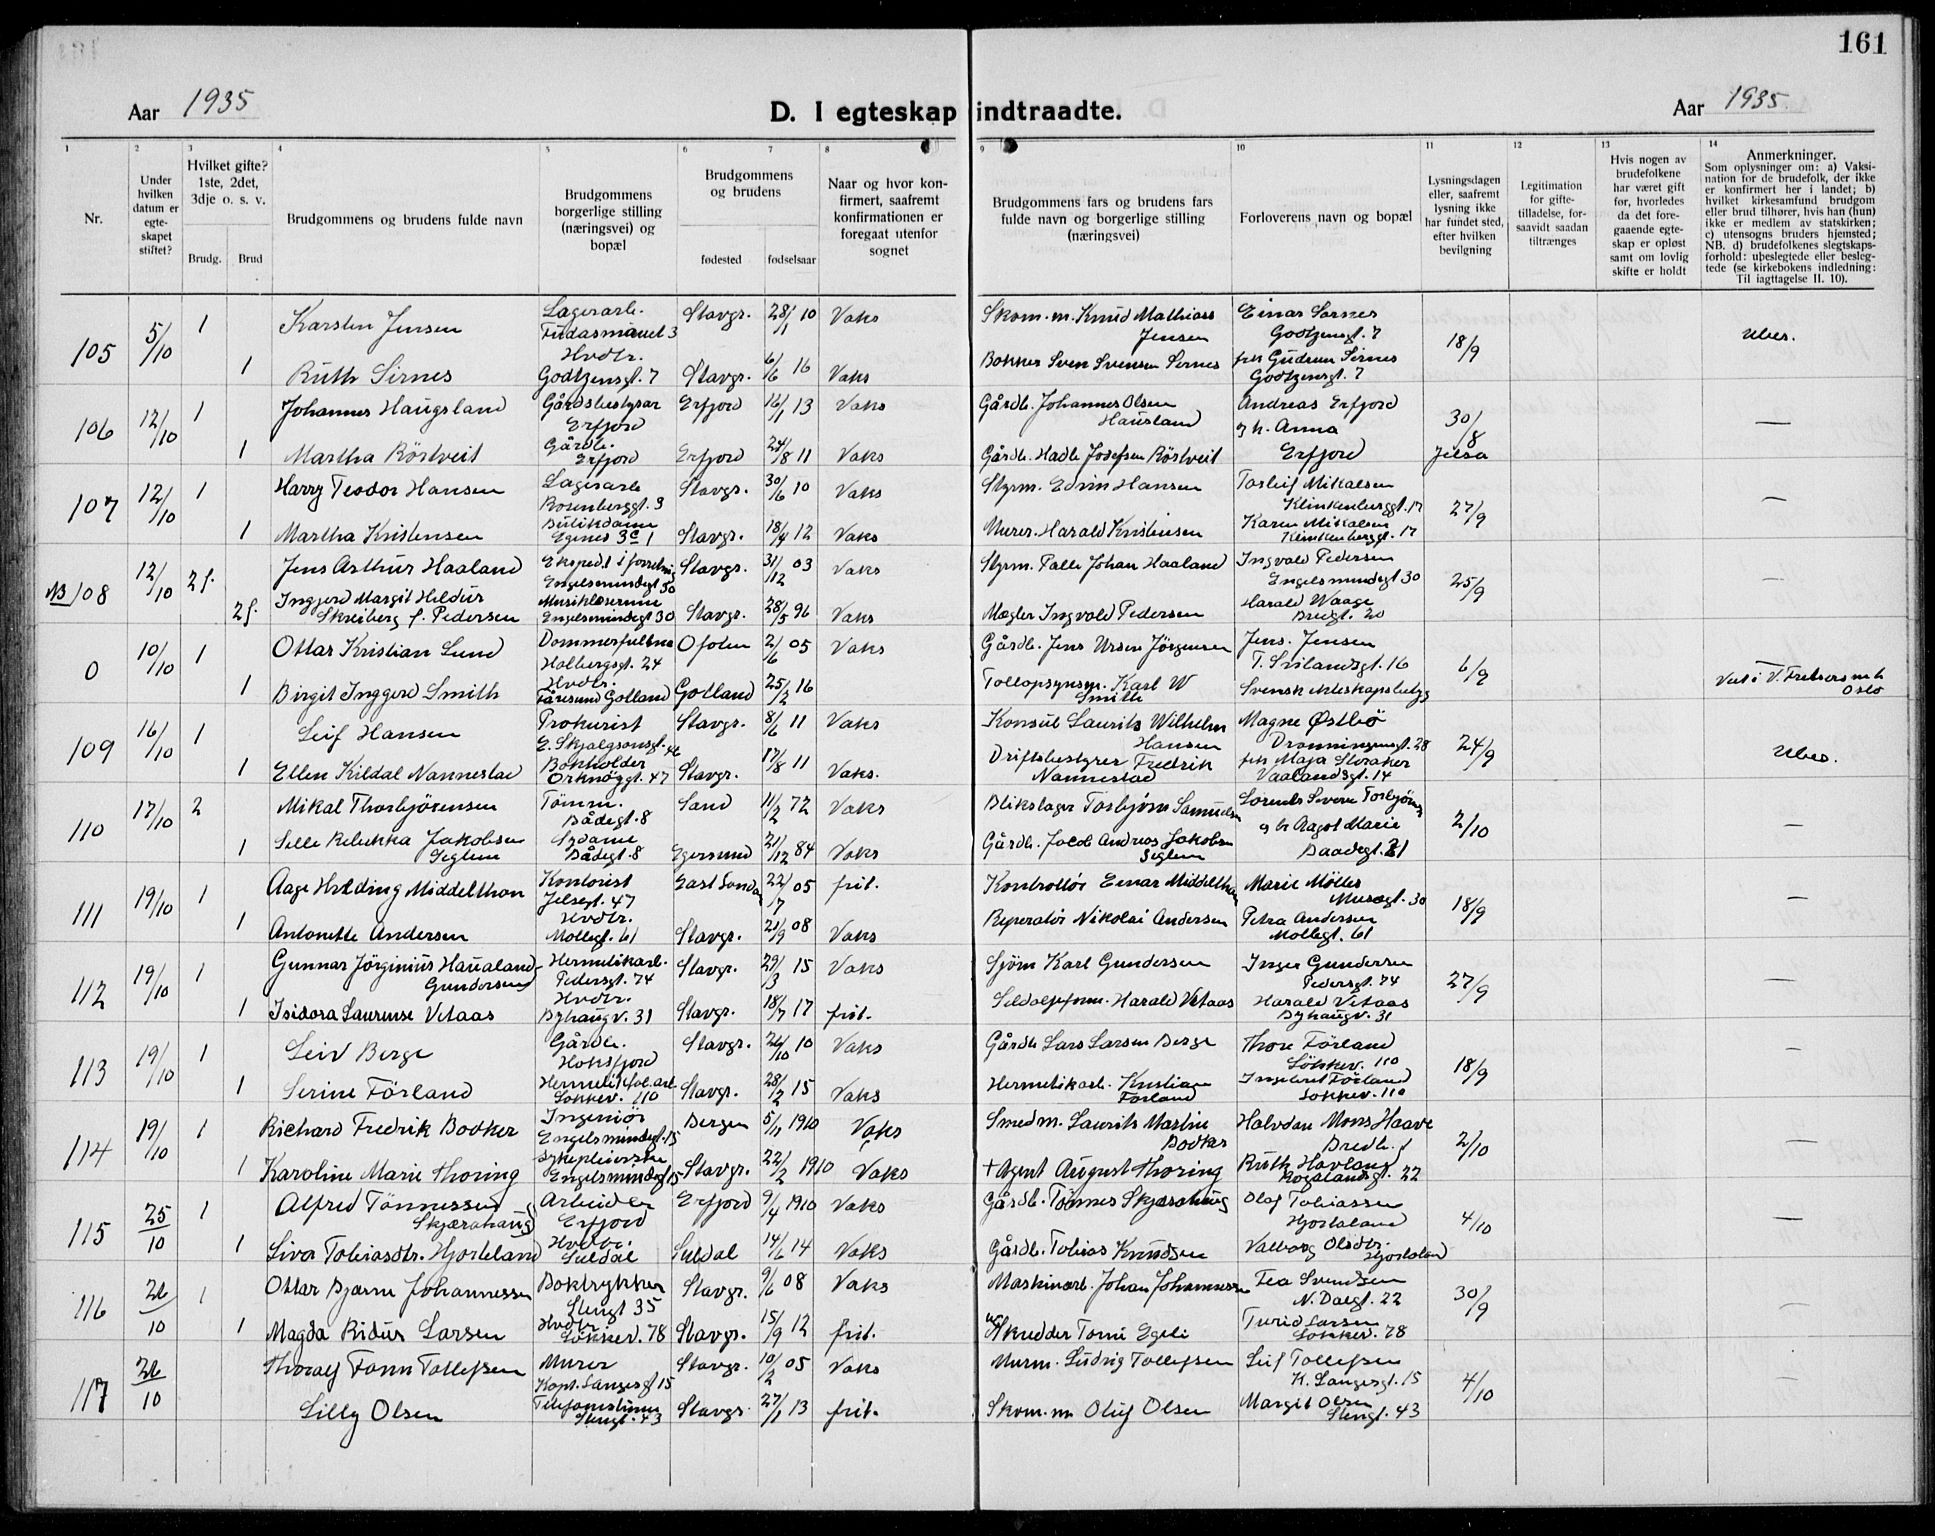 161
Aar 1935
D. I egteskap indtraadte.
Aar 1935.
1 2 3 4 5 6 7 8 9 10 11 12 13 14
Nr.
Under hvilken datum er egte-skapet stiftet?
Hvilket gifte? 1ste, 2det, 3dje o. s. v.
Brudg. Brud
Brudgommens og brudens fulde navn
Brudgommens borgerlige stilling (næringsvei) og bopæl
Brudgommens og brudens
fødested fødselsaar
Naar og hvor kon-firmert, saafremt konfirmationen er foregaat utenfor sognet
Brudgommens fars og brudens fars fulde navn og borgerlige stilling (næringsvei)
Forloverens navn og bopæl
Lysningsdagen eller, saafremt lysning ikke har fundet sted, efter hvilken bevilgning
Legitimation for gifte-tilladelse, for-saavidt saadan tiltrænges
Hvis nogen av brudefolkene har været gift før, hvorledes da det fore-gaaende egte-skap er opløst samt om lovlig skifte er holdt
Anmerkninger.
Som oplysninger om: a) Vaksi-nation for de brudefolk, der ikke er konfirmert her i landet; b) hvilket kirkesamfund brudgom eller brud tilhører, hvis han (hun) ikke er medlem av statskirken; c) utensogns bruders hjemsted; NB. d) brudefolkenes slegtskaps-forhold: ubeslegtede eller besleg-tede (se kirkebokens indledning: Til iagttagelse II. 10).
105 5/10 1 Karsten Jensen Lagerarb. Stavgr. 28/1 10 Vaks Skom.m. Knud Mathias Jensen Einar Sørnes Godtzensgt. 7 18/9 Ubes.
Hvdtr.
1 Ruth Sirnes Godtzensgt. 7 Stavgr. 6/6 16 Vaks Bøkker Sven Svensen Sirnes frk Gudrun Sirnes Godtzensgt. 7
106 12/10 1 Johannes Haugsland Gårdsbestyrer Erfjord Erfjord 16/1 13 Vaks Gårdb. Johannes Olsen Hausland Andreas Erfjord g h. Anna 30/8 —
1 Martha Röstveit Gårdb. Erfjord Erfjord 24/8 11 Vaks Gårdb. Hadle Josefsen Röstveit Erfjord Jelsa
107 12/10 1 Harry Teodor Hansen Lagerarb Rosenberggt. 3 Stavgr. 30/6 10 Vaks Styrm. Edvin Hansen Torleif Mikalsen Klinkenberggt. 17 27/9 —
1 Martha Kristensen Butikdame Egenes 3c 1 Stavgr. 18/4 12 Vaks Murer. Harald Kristensen Karen Mikalsen Klinkenberggt. 17
NB 108 12/10 2 f. Jens Arthur Haaland Eksped. i forretning Engelsmindegt 30 Stavgr. 31/12 03 Vaks Styrm. Palle Johan Haaland Ingvald Pedersen Engelsmindegt 30 25/9 —
2 f. Ingjerd Margit Hildur Skreiberg f. Pedersen Musiklærerinne Engelsmindegt 30 Stavgr. 28/5 96 Vaks Mægler Ingvald Pedersen Harald Waage Breigt. 20
0 10/10 1 Ottar Kristian Lund Dommerfullm Holbergsgt. 24 Ofoten 2/6 05 Vaks Gårdb. Jens Ursin Jörgensen Jens. Jensen T. Svilandsgt. 16 6/9
1 Birgit Inggerd Smith Hvdtr. Fåresund Gotland Gotland 25/2 16 Tollopsynsm. Karl W Smith Oslo
109 16/10 1 Leif Hansen Prokurist E. Skjalgsonsgt. 46 Stavgr. 8/6 11 Vaks Konsul Laurits Wilhelm Hansen Magne Østbö Dronningensgt. 28 24/9 Ubes.
1 Ellen Kildal Nannestad Bokholder Orknøygt. 47 Stavgr. 17/8 11 Vaks. Driftsbestyrer Fredrik Nannestad frk Maja Storaker Vaalandsgt. 14
110 17/10 2 Mikal Thorbjörensen Tømm. Bådegt. 8 Sand 11/2 72 Vaks Blikslager Torbjörn Samuelsen g h Aagot Marie 2/10 —
1 Jakobsen Seglem Sydame Bådegt. 8 Egersund 21/12 84 Vaks Gårdb. Jacob Andreas Jakobsen Seglem Baadegt. 21
111 19/10 1 Aage Hælding Middelthon Kontorist Jelsegt. 47 22/7 05 frit. Kontrollör Einar Middelthon Marie Möller Musegt. 30 18/9 —
1 Antonette Andersen Hvdtr. Mollegt. 61 Stavgr. 21/9 08 Vaks Reperatör Nikolai Andersen Petra Andersen Mollegt. 61
112 19/10 1 Gunnar Jörginius Haualand Gundersen Hermetikarb. Pedersgt. 74 Stavgr. 29/3 15 Vaks Sjöm Karl Gundersen Inger Gundersen Pedersgt. 74 27/9 —
1 Isidora Laurense Vetaas Hvdtr. Byhaugv. 31 Stavgr. 18/7 17 frit. Harald Vetaas Harald Vetaas Byhaugv. 31
113 19/10 1 Leiv Berge Gårdb. Stavgr. 26/10 10 Vaks Gårdb Lars Larsen Berge Thore Förland Lökkev. 110 18/9 —
1 Serine Förland Lökkev. 110 Stavgr. 28/2 15 Vaks Hermetikarb. Kristian Förland Ingeborg Förland Lokkev. 110
114 19/10 1 Richard Fredrik Bodker Ingeniör Engelsmindegt. 15 Bergen 5/1 1910 Vaks Smed m. Laurits Martin Bodker Halvdan Mons Haave 2/10 —
1 Karoline Marie Thoring Sykepleierske Engelsmindegt 15 Stavgr. 22/2 1910 Vaks + Agent August Thoring Ruth Havland Rogalandsgt. 22
115 25/10 1 Alfred Tönnessen Skjærahaug Arbeider Erfjord Erfjord 9/4 1910 Vaks Gårdb. Tönnes Skjærahaug Olaf Tobiassen Hjorteland 4/10 —
1 Siva Tobiasdtr. Hjorteland Hvdtr. Suldal Suldal 14/6 14 Vaks Gårdb. Tobias Knudsen Valborg Olsdtr. Hjorteland
116 26/10 1 Ottar Bjarne Johannessen Boktrykker Stengt 35 Stavgr. 9/6 08 Vaks Maskinarb. Johan Johannessen Tea Svendsen N. Dalgt. 22 30/9 —
1 Magda Ridus Larsen Hvdtr. Lökkev. 78 Stavgr. 15/9 12 frit. Skredder Toni Egeli Turid Larsen Lokkev. 78
117 26/10 Thoralf Fonn Tollefsen Murer Kapt. Langesgt 15 Stavgr. 10/2 05 Vaks Murm. Ludvig Tollefsen Leif Tollefsen K. Langesgt. 15 4/10 —
Lilly Olsen Telefonistinne Stengt. 43 Stavgr. 27/1 13 frit. Skom.m Oluf Olsen Margit Olsen Stengt. 43